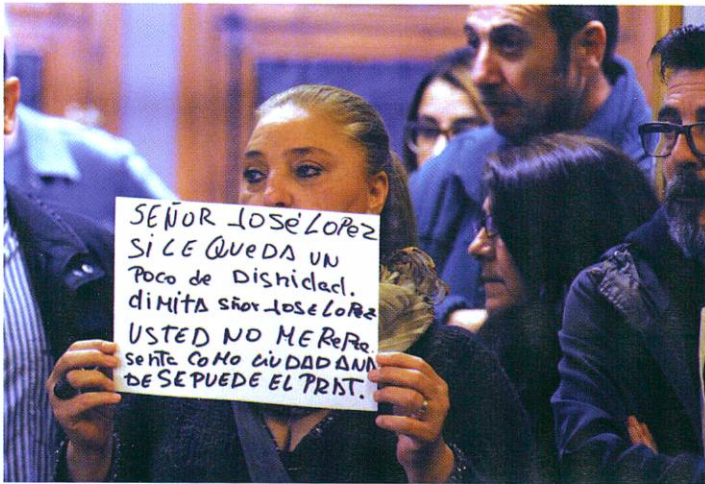 SEÑOR JOSÉ LOPEZ
SI LE QUEDA UN
POCO de DISNIdad.
diMITA sñor JOSE LOPEZ
USTED NO ME RePRe.
seNTA COMO CIUDADANA
DE SEPUEDE EL PRAT.